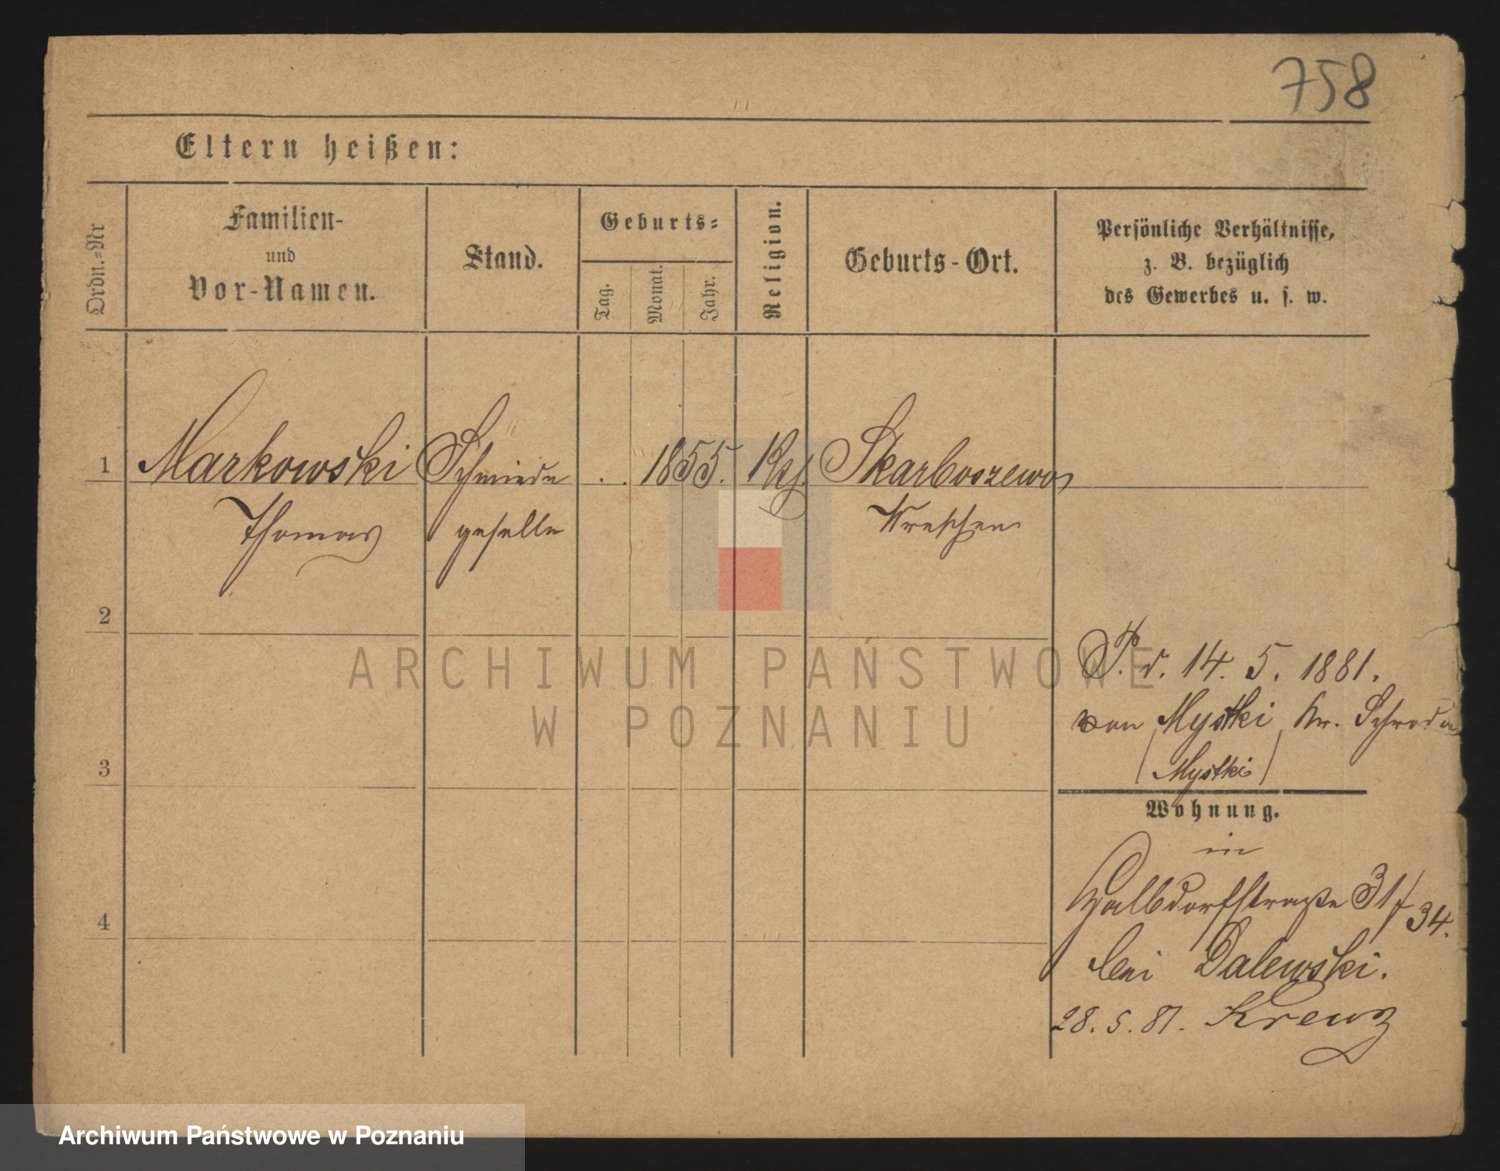 758
Eltern heißen:
Ordn.-Nr
Familien-
und
Vor-Namen.
Stand.
Geburts-
Tag.
Monat.
Jahr.
Religion.
Geburts-Ort.
Persönliche Verhältnisse,
z. B. bezüglich
des Gewerbes u. s. w.
1 Markowski Schmiede . . 1855. Skarboszewo
Thomas geselle Wreschen
2
P. v. 14. 5. 1881.
von Mystki Kr. Schroda
(Mystki)
3
Wohnung.
in
Halbdorfstraße 31/34.
4
bei Dalewski.
28. 5. 81. Kreuz
ARCHIWUM PAŃSTWOWE
W POZNANIU
Archiwum Państwowe w Poznaniu